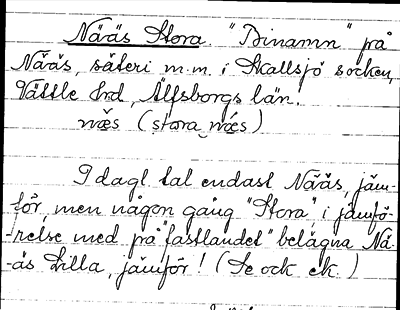 Nääs Stora. "Binamn" på
Nääs, säteri m.m. i Skallsjö socken,
Vättle hrd, Älfsborgs län.
næs (stora næs)
I dagl. tal endast Nääs, jäm-
för, men någon gång "Stora" i jämfö-
-relse med på "fastlandet" belägna Nä-
-äs Lilla, jämför! (Se ock ek.)